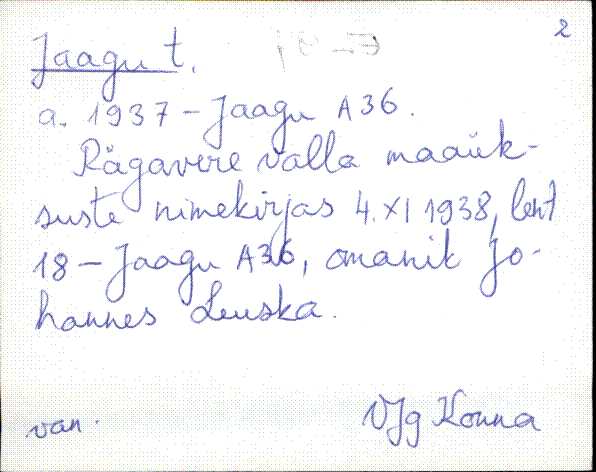 2
Jaagu t.
a. 1937 - Jaagu A36.
Rägavere valla maaük-
suste nimekirjas 4. XI 1938, leht
18 - Jaagu A36, omanik Jo-
hannes Leuska.
van.
VJg Konna